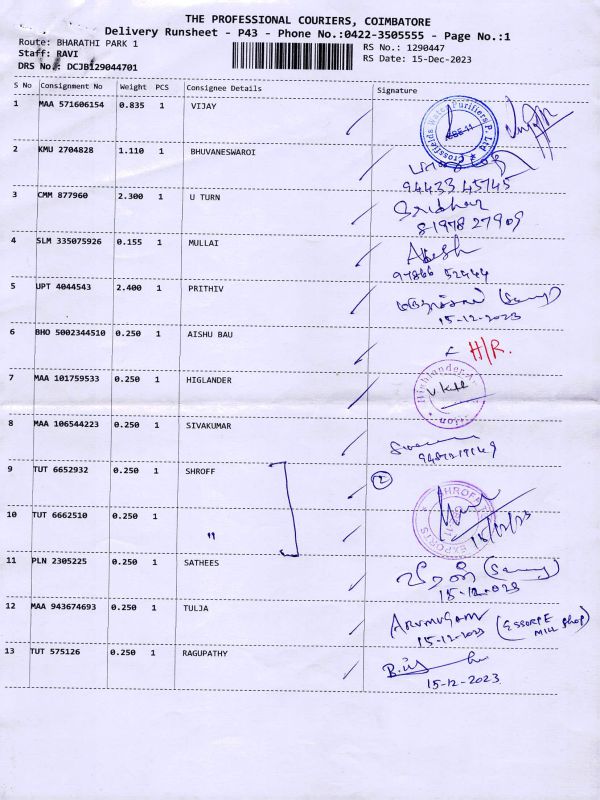 THE PROFESSIONAL COURIERS, COIMBATORE
Delivery Runsheet - P43 - Phone No.:0422-3505555 - Page No.:1
Route: BHARATHI PARK 1 RS No.: 1290447
Staff: RAVI RS Date: 15-Dec-2023
DRS No.: DCJB129044701
S No Consignment No Weight PCS Consignee Details Signature
1 MAA 571606154 0.835 1 VIJAY
2 KMU 2704828 1.110 1 BHUVANESWAROI
94433 45745
3 CMM 877960 2.300 1 U TURN Sridhar
81978 27909
4 SLM 335075926 0.155 1 MULLAI
97866 52444
5 UPT 4044543 2.400 1 PRITHIV
15-12-2023
6 BHO 5002344510 0.250 1 AISHU BAU H/R.
7 MAA 101759533 0.250 1 HIGLANDER
8 MAA 106544223 0.250 1 SIVAKUMAR
9 TUT 6652932 0.250 1 SHROFF 2
10 TUT 6662510 0.250 1 "
15/12/23
11 PLN 2305225 0.250 1 SATHEES
15-12-2023
12 MAA 943674693 0.250 1 TULJA ARUMUGAM
15-12-2023 (ESSORPE MILL Shop)
13 TUT 575126 0.250 1 RAGUPATHY
15-12-2023